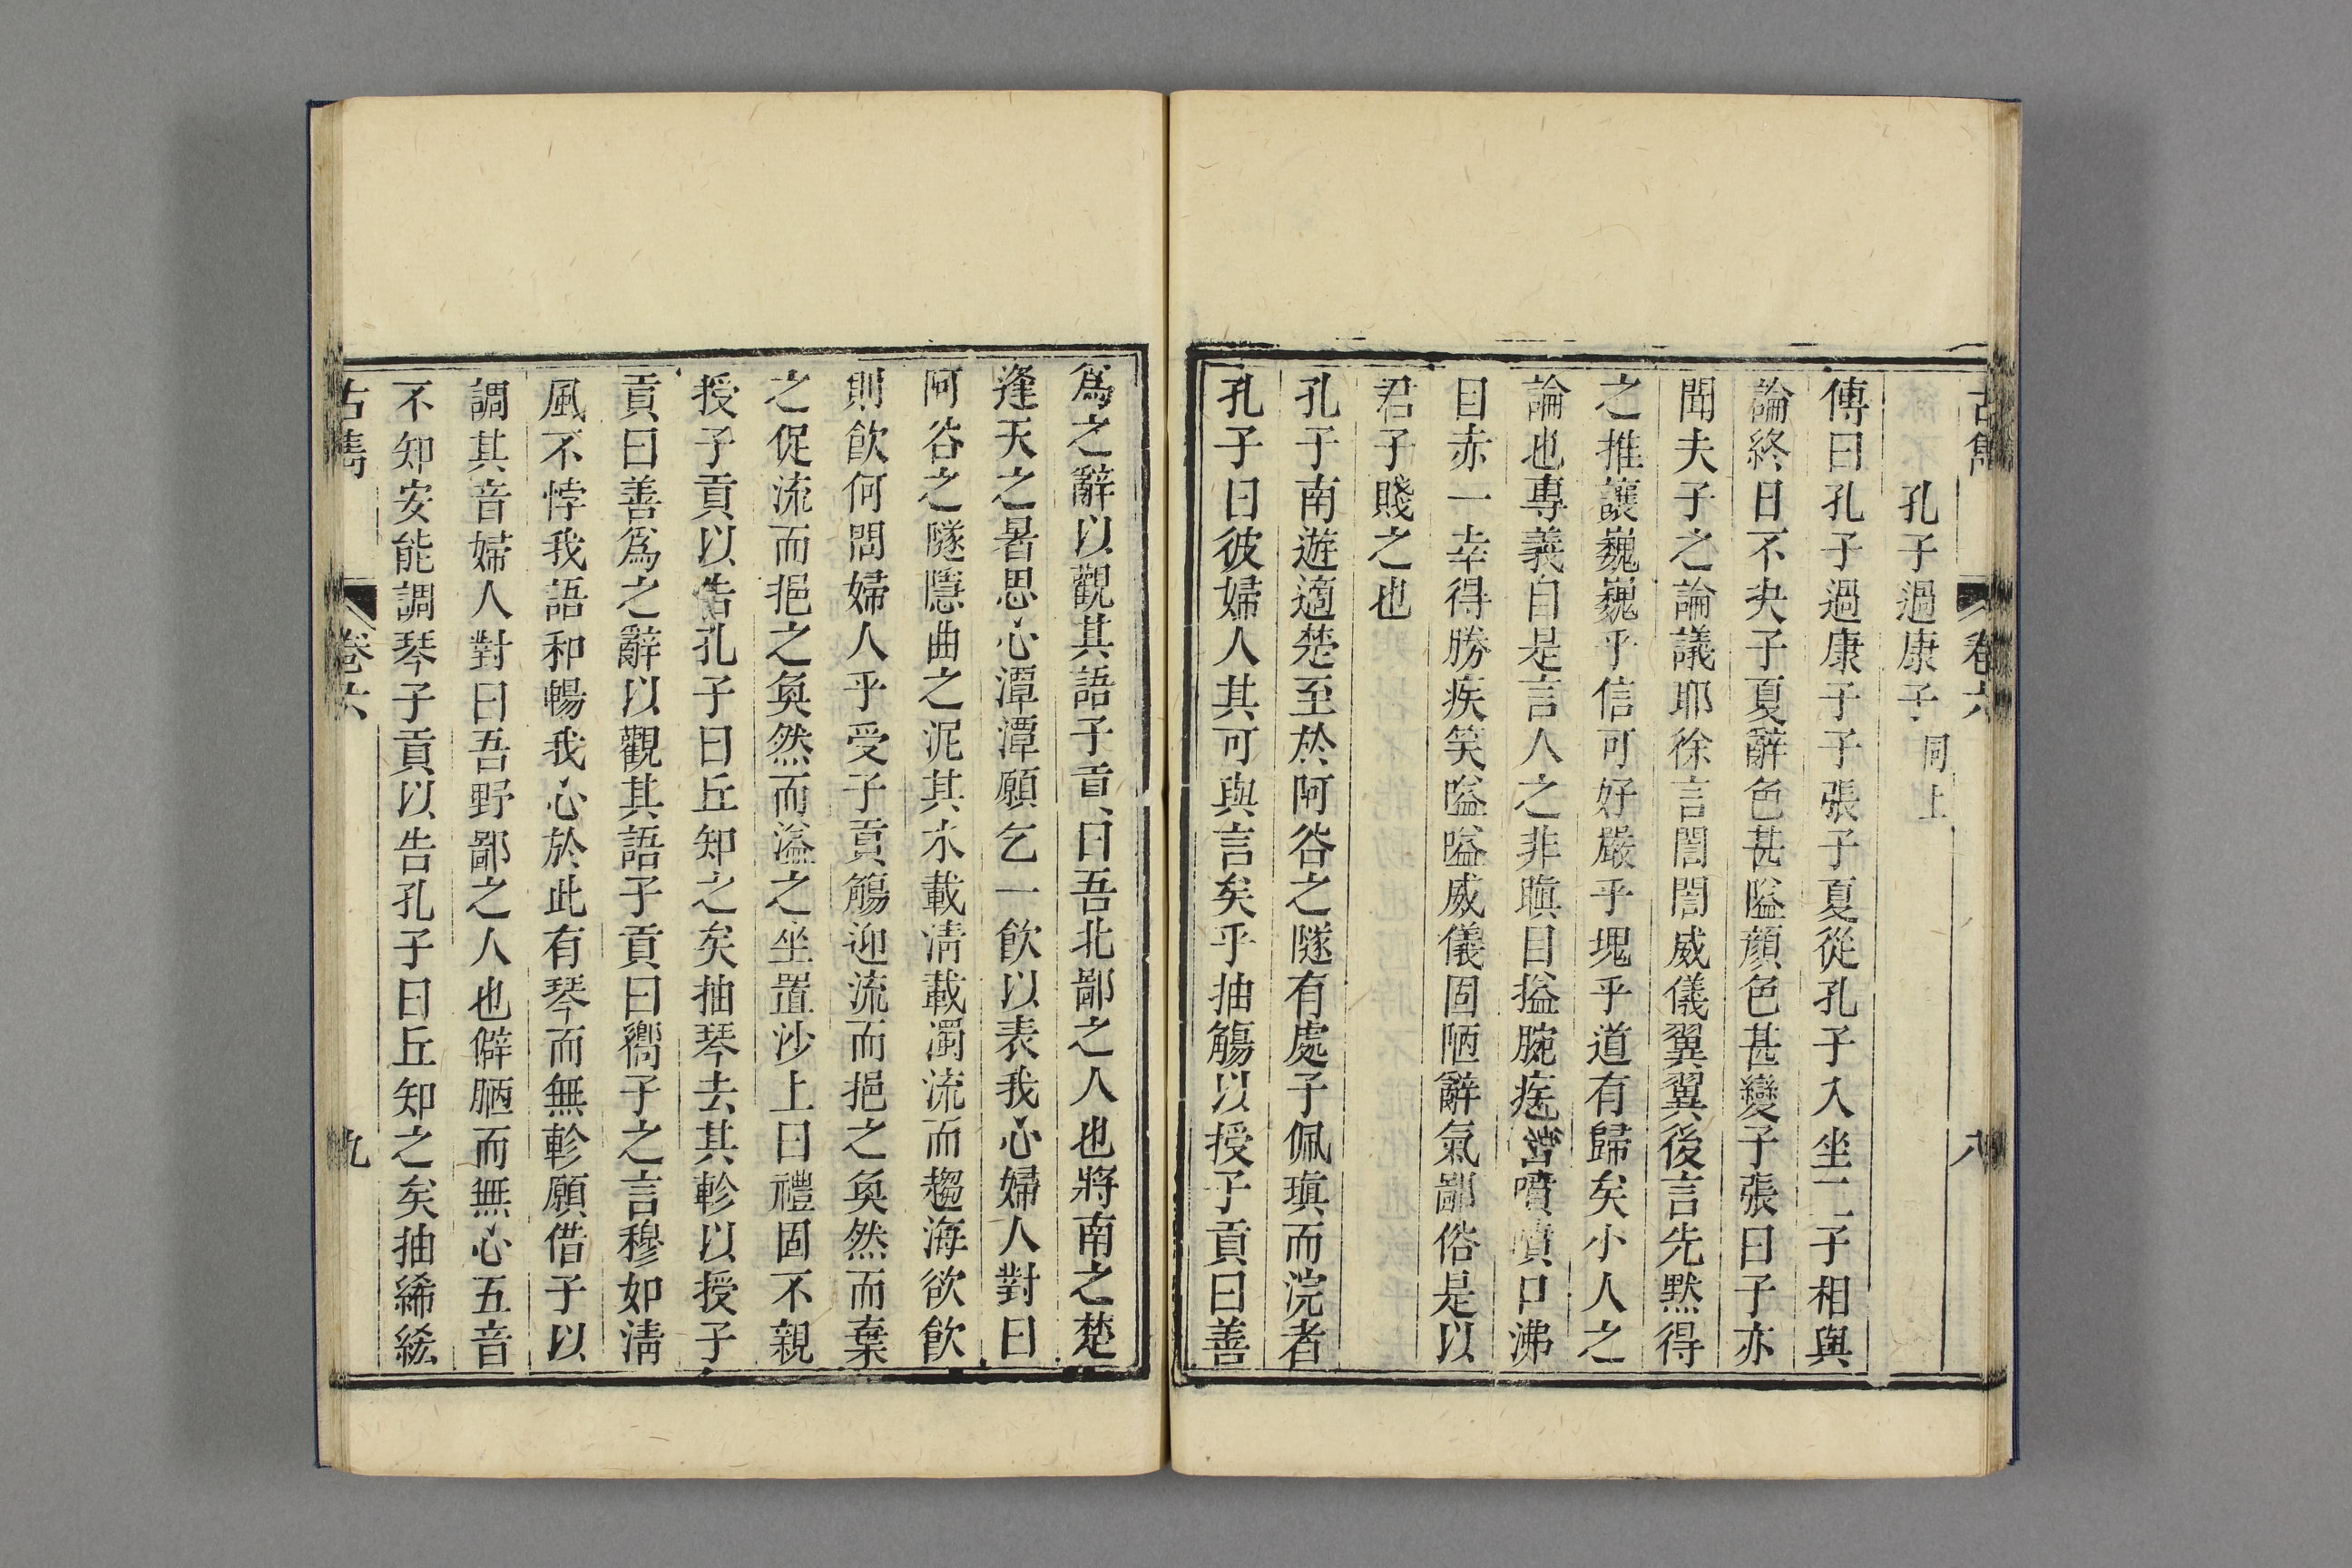 古雋 卷六 八
孔子過康子 同上
傳曰孔子過康子子張子夏從孔子入坐二子相與
論終日不決子夏辭色甚隘顏色甚變子張曰子亦
聞夫子之論議耶徐言誾誾威儀翼翼後言先默得
之推讓巍巍乎信可好嚴乎塊乎道有歸矣小人之
論也專義自是言人之非瞋目搤腕疾言噴噴口沸
目赤一幸得勝疾笑嗌嗌威儀固陋辭氣鄙俗是以
君子賤之也
孔子南遊適楚至於阿谷之隧有處子佩瑱而浣者
孔子曰彼婦人其可與言矣乎抽觴以授子貢曰善
為之辭以觀其語子貢曰吾北鄙之人也將南之楚
逢天之暑思心潭潭願乞一飲以表我心婦人對曰
阿谷之隧隱曲之泥其水載清載濁流而趨海欲飲
則飲何問婦人乎受子貢觴迎流而挹之奐然而棄
之促流而挹之奐然而溢之坐置沙上曰禮固不親
授子貢以告孔子曰丘知之矣抽琴去其軫以授子
貢曰善為之辭以觀其語子貢曰嚮子之言穆如清
風不悖我語和暢我心於此有琴而無軫願借子以
調其音婦人對曰吾野鄙之人也僻陋而無心五音
不知安能調琴子貢以告孔子曰丘知之矣抽絺綌
古雋 卷六 九